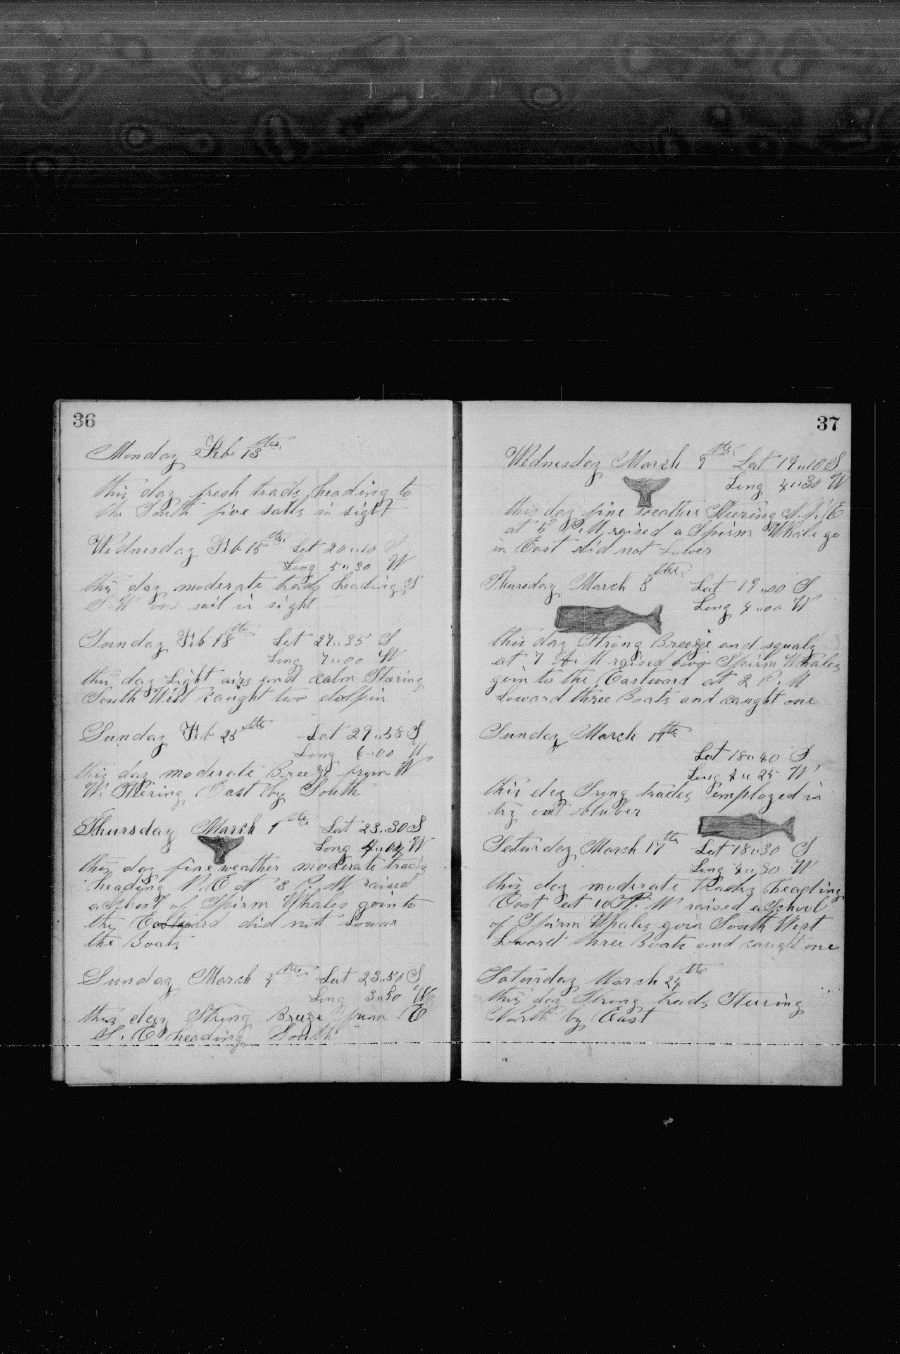 36
Monday Feb 13th
this day fresh trads heading to
the South five sails in sight
Wednesday Feb 15th Lat 20"10 S
Long 5"30 W
this day moderate trads heading S
S W one sail in sight
Sunday Feb 18th Lat 27"35 S
Long 7"00 W
this day Light airs and calm Stering
South West caught two dolfin
Sunday Feb 25th Lat 29"58 S
Long 6"00 W
this day moderate Breeze from W
W. Stering East by South
Thursday March 1th Lat 23"30 S
Long W
this day fine weather moderate trads
heading N.E at 3 P.M raised
a of Spirm Whales goin to
the did not Lowar
the Boats
Sunday March 4th Lat 23"51 S
Long 3"50 W
this day Strong Breeze from E
S. E heading South
37
Wednesday March 7th Lat 19"10 S
Long 4"30 W
this day fine weather Stering S.S.E
at 5 P.M raised a Spirm Whale go
in East did not Lower
Thursday March 8th Lat 19"00 S
Long 4"00 W
this day Strong Breeze and squaly
at 7 A.M raised two Spirm Whales
goin to the Eastward at 2 P.M
Loward three Boats and caught one
Sunday March 11th
Lat 18"40 S
Long W
this day Srong trades employed in
try out bluber
Saturday March 17th Lat 18"30 S
Long 4"30 W
this day moderate trads heading
East at 10 A.M raised a School
of Spirm Whales goin South West
Loward three Boats and caught one
Saturday March 24th
this day Strong trads Stering
North by East